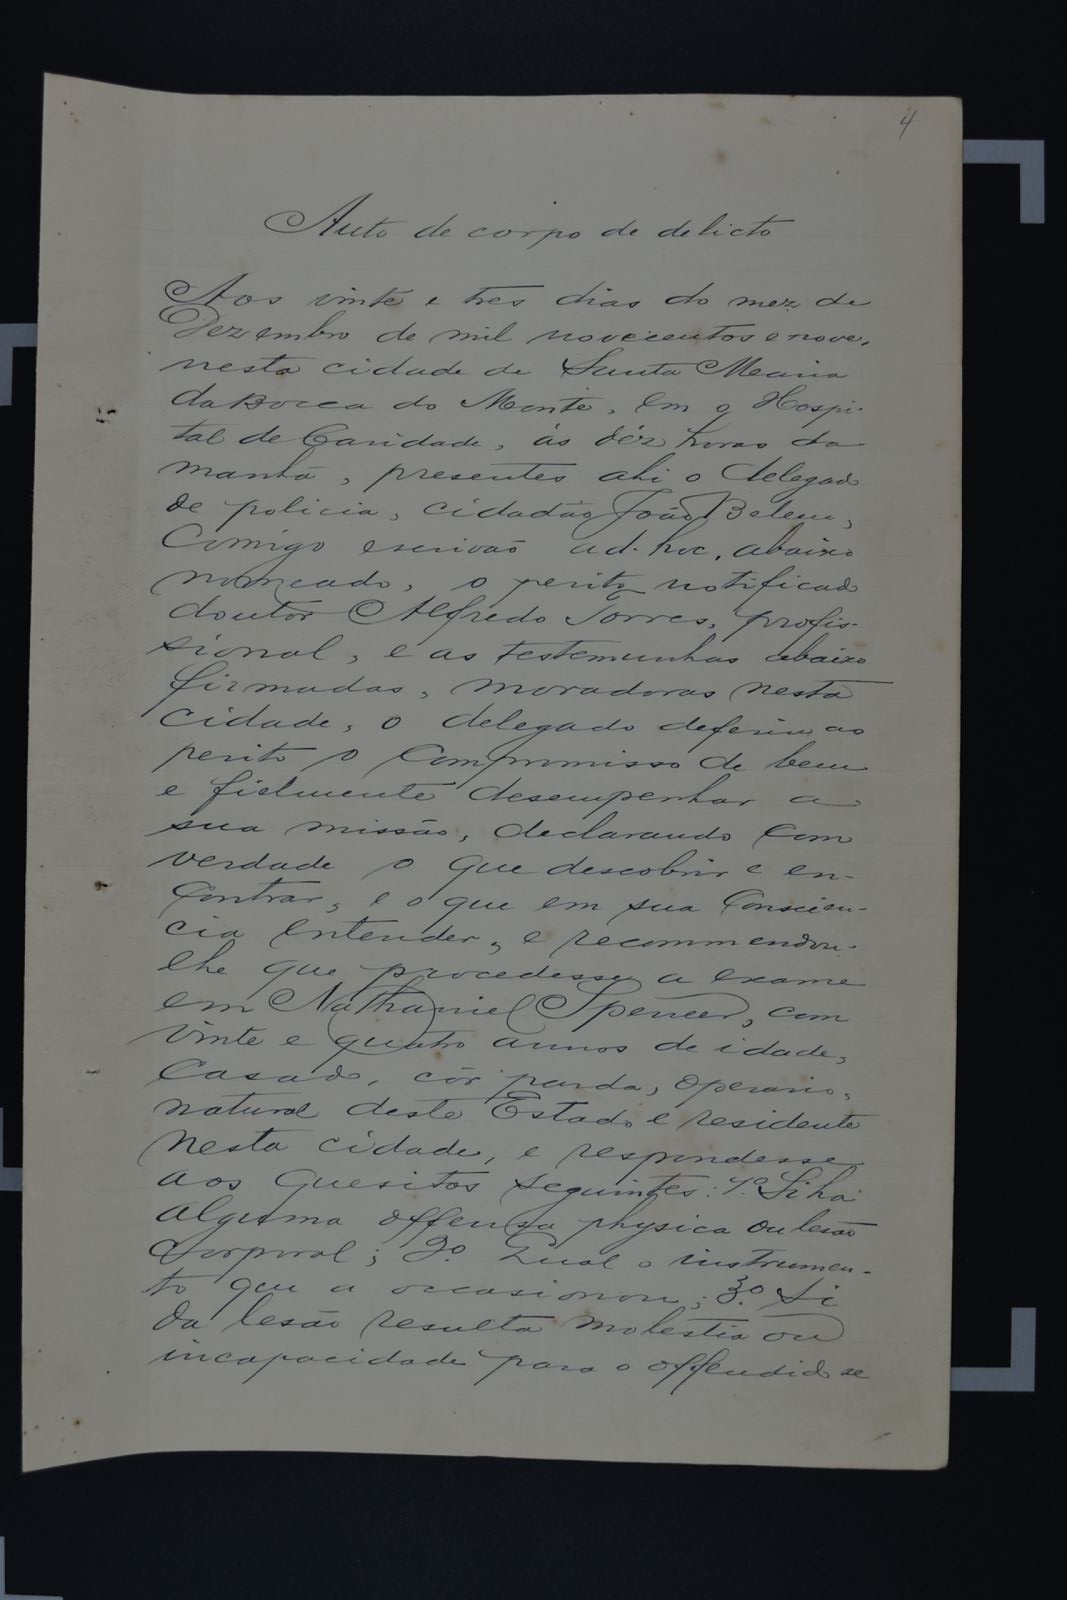 4
Auto de corpo de delicto
Aos vinte e tres dias do mez de
Dezembro de mil novecentos e nove,
nesta cidade de Santa Maria
da Bocca do Monte, em o Hospi-
tal de Caridade, ás déz horas da
manhã, presentes ahi o delegado
de policia, cidadão João Belem,
Comigo escrivão ad-hoc, abaixo
nomeado, o perito notificado
doutor Alfredo Torres, profis-
sional, e as testemunhas abaixo
firmadas, moradoras nesta
cidade, o delegado deferiu ao
perito o compromisso de bem
e fielmente desempenhar a
sua missão, declarando com
verdade o que descobrir e en-
contrar, e o que em sua conscien-
cia entender, e recommendou-
lhe que procedesse a exame
em Nathaniel Spencer, com
vinte e quatro annos de idade,
casado, côr parda, operario,
natural deste Estado e residente
nesta cidade, e respondesse
aos quesitos seguintes: 1º. Si ha
alguma offensa physica ou lesão
corporal; 2º. Qual o instrumen-
to que a occasionou; 3º. Si
da lesão resulta molestia ou
incapacidade para o offendido se